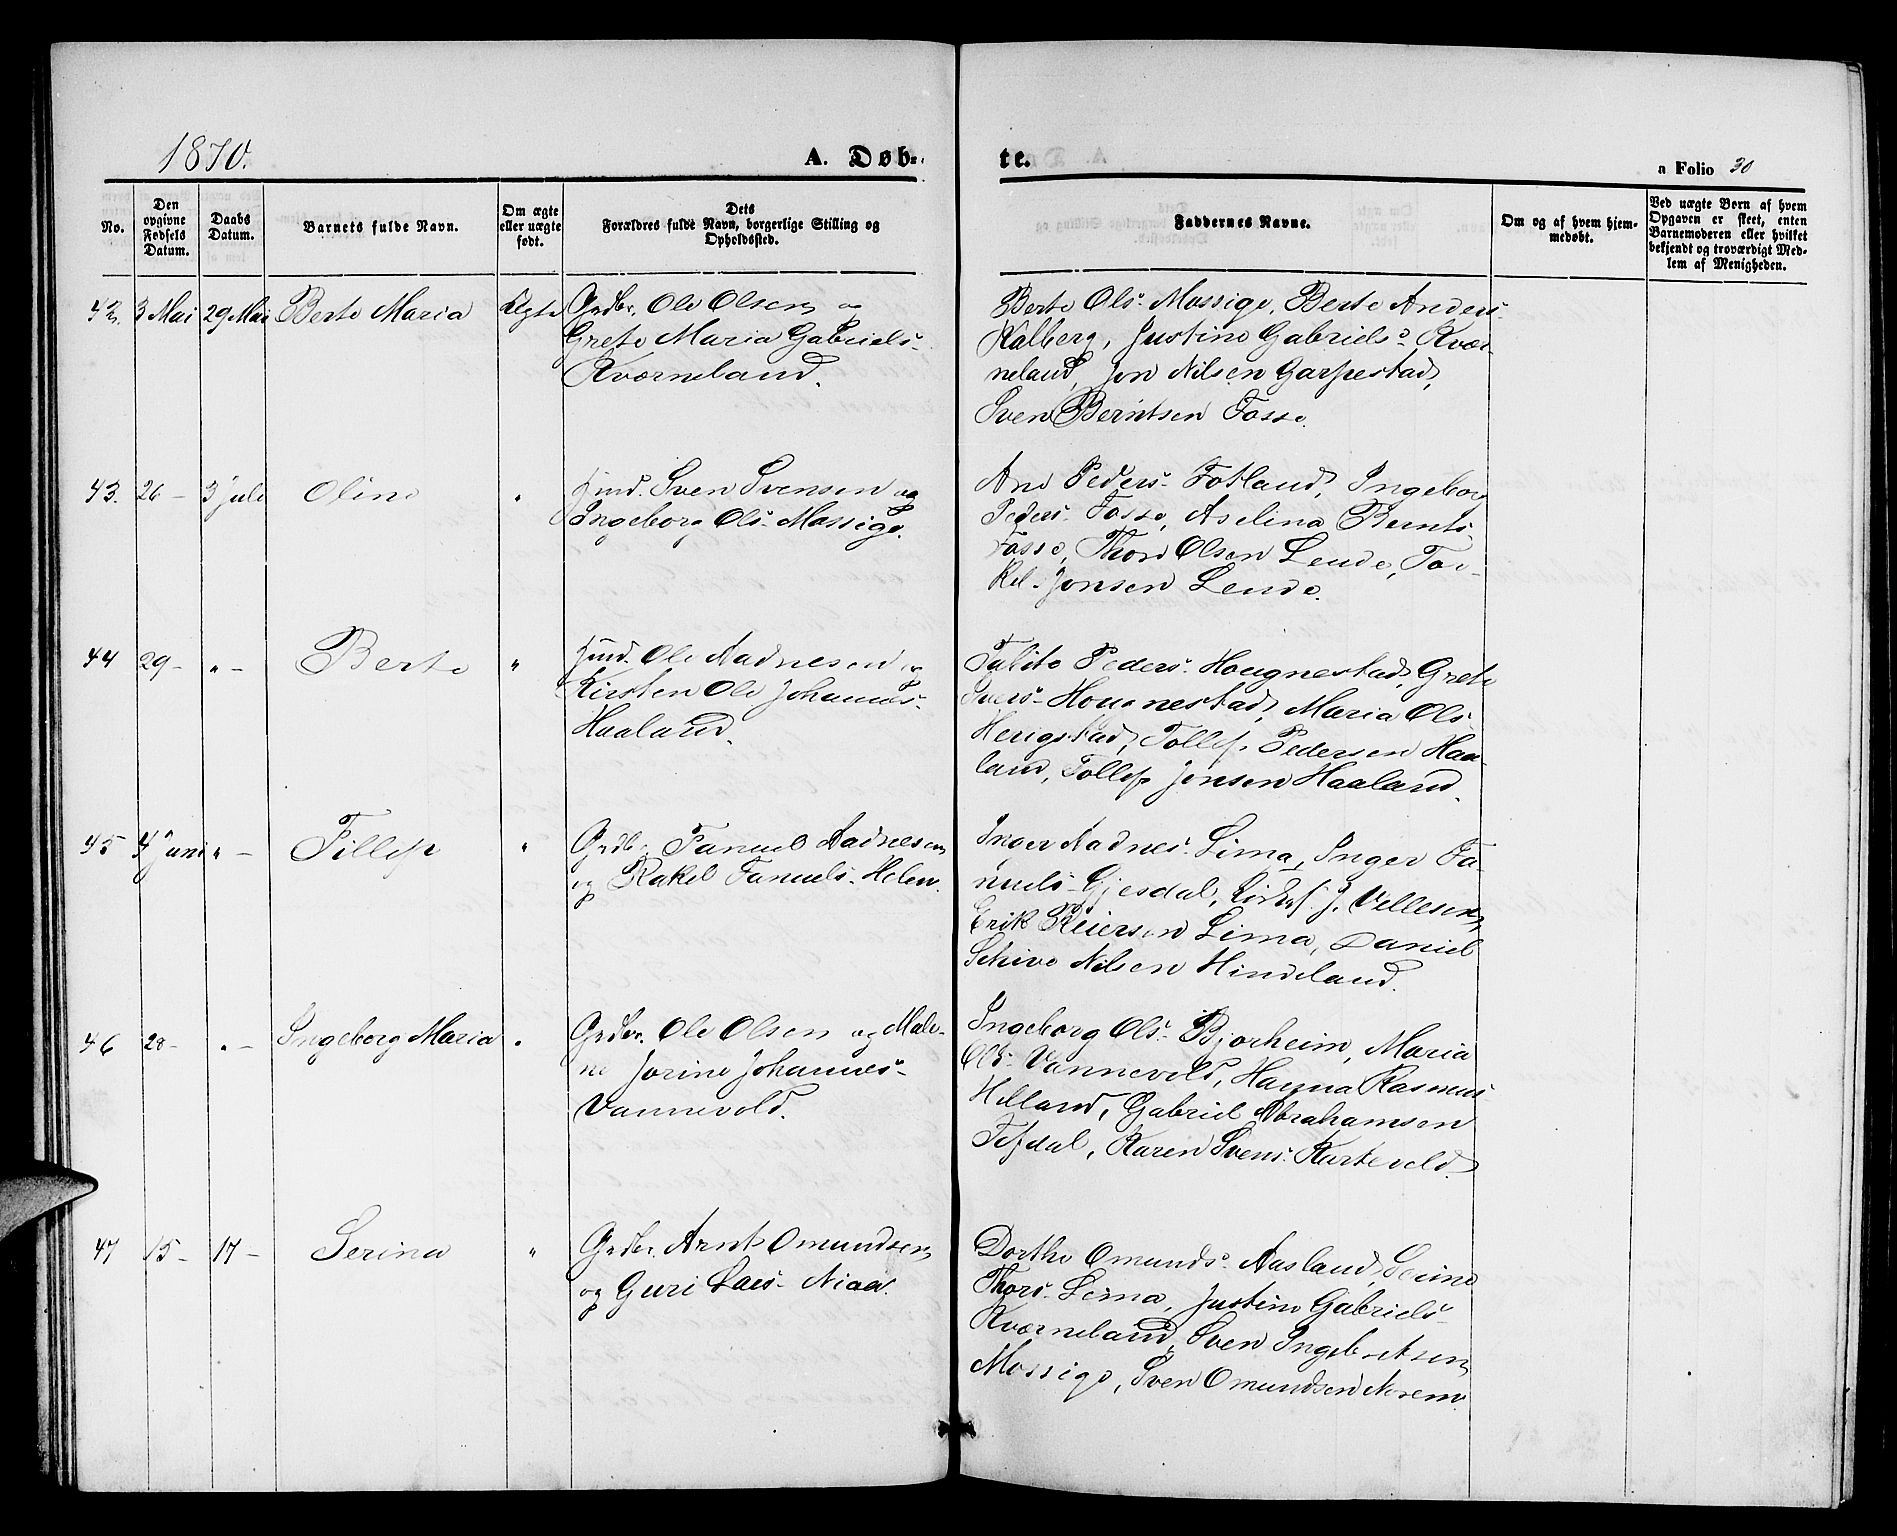 1870.
A. Døb-
te.
a Folio 30
No.
Den opgivne Fødsels Datum.
Daabs Datum.
Barnets fulde Navn.
Om ægte eller uægte født.
Dets Forældres fulde Navn, borgerlige Stilling og Opholdssted.
Faddernes Navne.
Om og af hvem hjemmedøbt.
Ved uægte Børn af hvem Opgaven er skeet, enten Barnemoderen eller hvilket bekjendt og troværdigt Medlem af Menigheden.
42. 3 Mai 29 Mai Berte Maria Ægte Grdbr. Ole Olsen og
Grete Maria Gabriels-
Kværneland.
Berte Ols- Mossige, Berte Anders-
Kalberg, Justine Gabriels- Kvær-
neland, Jon Nilsen Garpestad,
Sven Berntsen Fosse.
43. 26 - 3 Juli Oline " Hmd. Sven Svensen og
Ingeborg Ols- Mossige.
Ane Peders- Fotland, Ingeborg
Peders- Fosse, Aselina Bernts-
Fosse, Thore Olsen Lende, Tor-
kel Jonsen Lende.
44 29 - " - Berte " Hmd. Ole Aadnesen og
Kirsten Ole Johannes-
Haaland.
Talite Peders- Hougnestad, Grete
Ivers- Hougnestad, Maria Ols-
Herigstad, Tollef Pedersen Haa-
land, Tollef Jonsen Haaland.
45 4 Juni " - Fillep " Grdbr. Fanuel Aadnesen
og Rakel Fanuels- Helen.
Inger Aadnes- Lima, Inger Fa-
nuels- Gjesdal, J. Vellesen,
Erik Reiersen Lima, Daniel
Schive Nilsen Hindeland.
46 28 - " - Ingeborg Maria " Grdbr. Ole Olsen og Male-
ne Jorine Johannes-
Vannevold.
Ingeborg Ols- Bjorheim, Maria
Ols- Vannevold, Hanna Rasmus-
Helland, Gabriel Abrahamsen
Tefdal, Karen Svens- Kartevold.
47 15 - 17 - Serina " Grdbr. Arnt Omundsen
og Guri Lars- Niaa.
Dorthe Omunds- Aasland, Serine
Thors- Lima, Justine Gabriels-
Kværneland, Sven Ingebretsen
Mossige, Sven Omundsen Norem.